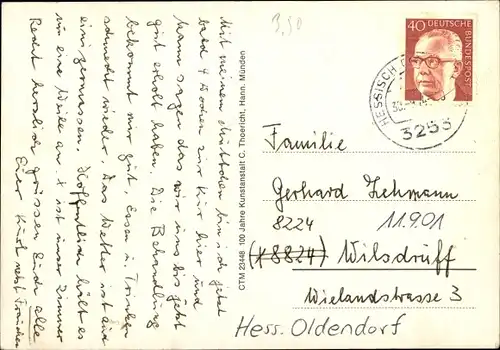 Mit meinem Muttchen bin ich jetzt
bald 4 Wochen zur Kur hier und
kann sagen das wir uns bis jetzt
gut erholt haben. Die Behandlung
bekommt mir gut, Essen u. Trinken
schmeckt wieder. Das Wetter ist bald
einigermassen. Hoffentlich hält es
nur eine Weile an. X ist unser Zimmer
Recht herzliche Grüsse an Euch alle
Euer Kurt nebst Frauchen
3,50
CTM 23448 100 Jahre Kunstanstalt C. Thoericht, Hann. Münden
40
DEUTSCHE
BUNDESPOST
HESSISCH O
3253
Familie
Gerhard Zehmann
8224
11.9.01
(X 8824) Wilsdruff
Wielandstrasse 3
Hess. Oldendorf